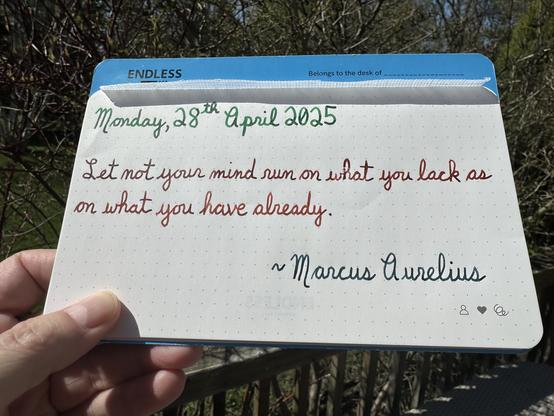 ENDLESS
Belongs to the desk of
Monday, 28th April 2025
Let not your mind run on what you lack as
on what you have already.
~ Marcus Aurelius